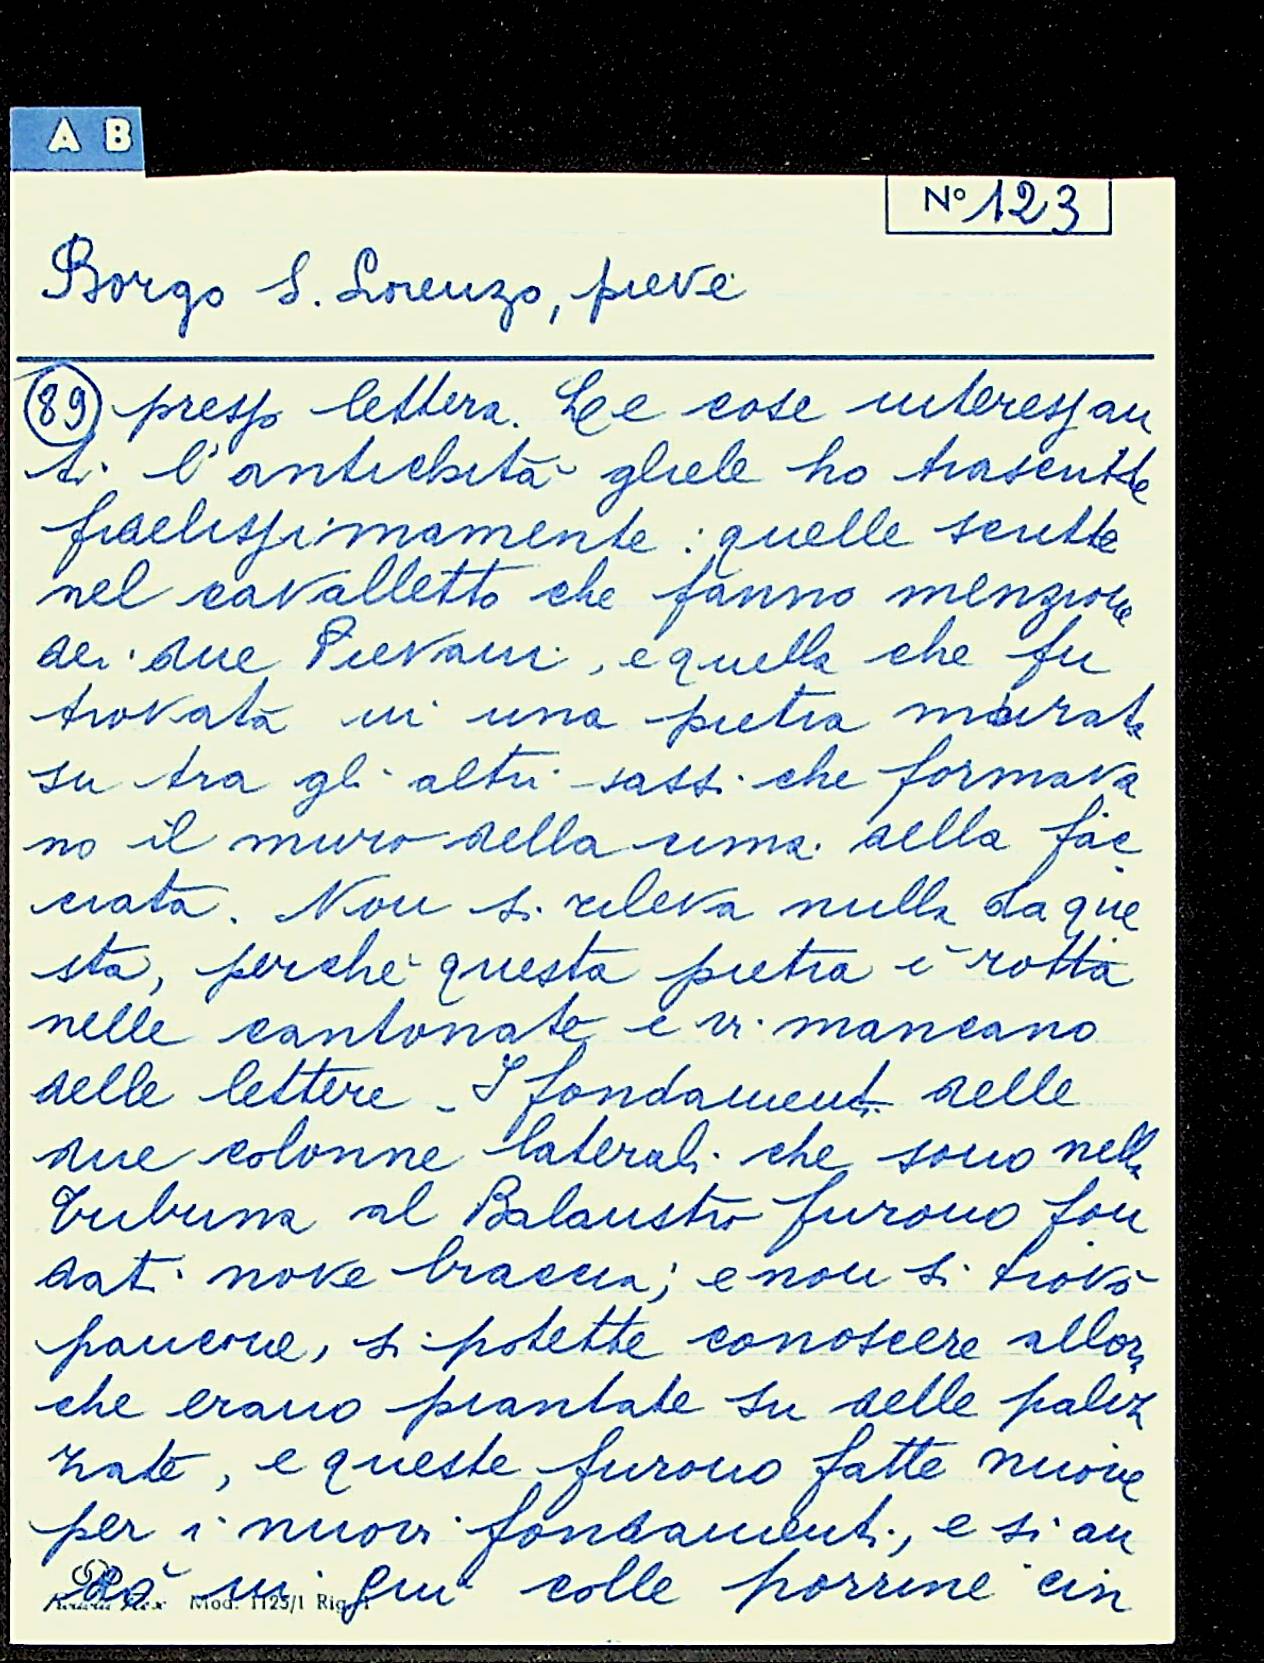 A B
Nº 123
Borgo S. Lorenzo, pieve
89 presso lettera. Le cose interessan
ti l'antichità gliele ho trascritte
fidelissimamente: quelle scritte
nel cavalletto che fanno menzione
dei due Pievani, e quella che fu
trovata in una pietra murata
su tra gli altri sassi che formava
no il muro della cima della fac
ciata. Non si rileva nulla da que
sta, perché questa pietra è rotta
nelle cantonate e vi mancano
delle lettere - I fondamenti delle
due colonne laterali che sono nella
Tribuna al Balaustro furono fon
dati nove braccia; e non si trovò
pancone, si potette conoscere allora
che erano piantate su delle paliz
zate, e queste furono fatte nuove
per i nuovi fondamenti, e si an
dò in giù colle porrine cin
Mod. 1125/1 Rig. 1